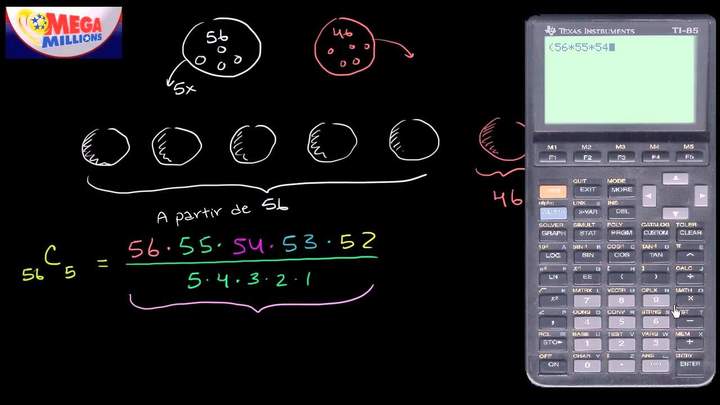 MEGA
MILLIONS
56
46
5x
A partir de 56
46
56C5 = 56·55·54·53·52
5·4·3·2·1
TEXAS INSTRUMENTS TI-85
(56*55*54
M1 M2 M3 M4 M5
F1 F2 F3 F4 F5
QUIT MODE
EXIT MORE
alpha LINK INS
x-VAR DEL
SOLVER SIMULT POLY CATALOG TOLER
GRAPH STAT PRGM CUSTOM CLEAR
LOG SIN COS TAN ^
LN EE ( ) ÷
MATRX VECTR CPLX MATH
7 8 9 ×
CONS CONV STRNG
, 4 5 6 −
RCL BASE TEST VARS MEM
STO▸ 1 2 3 +
OFF CHAR ANS ENTRY
ON 0 . (-) ENTER